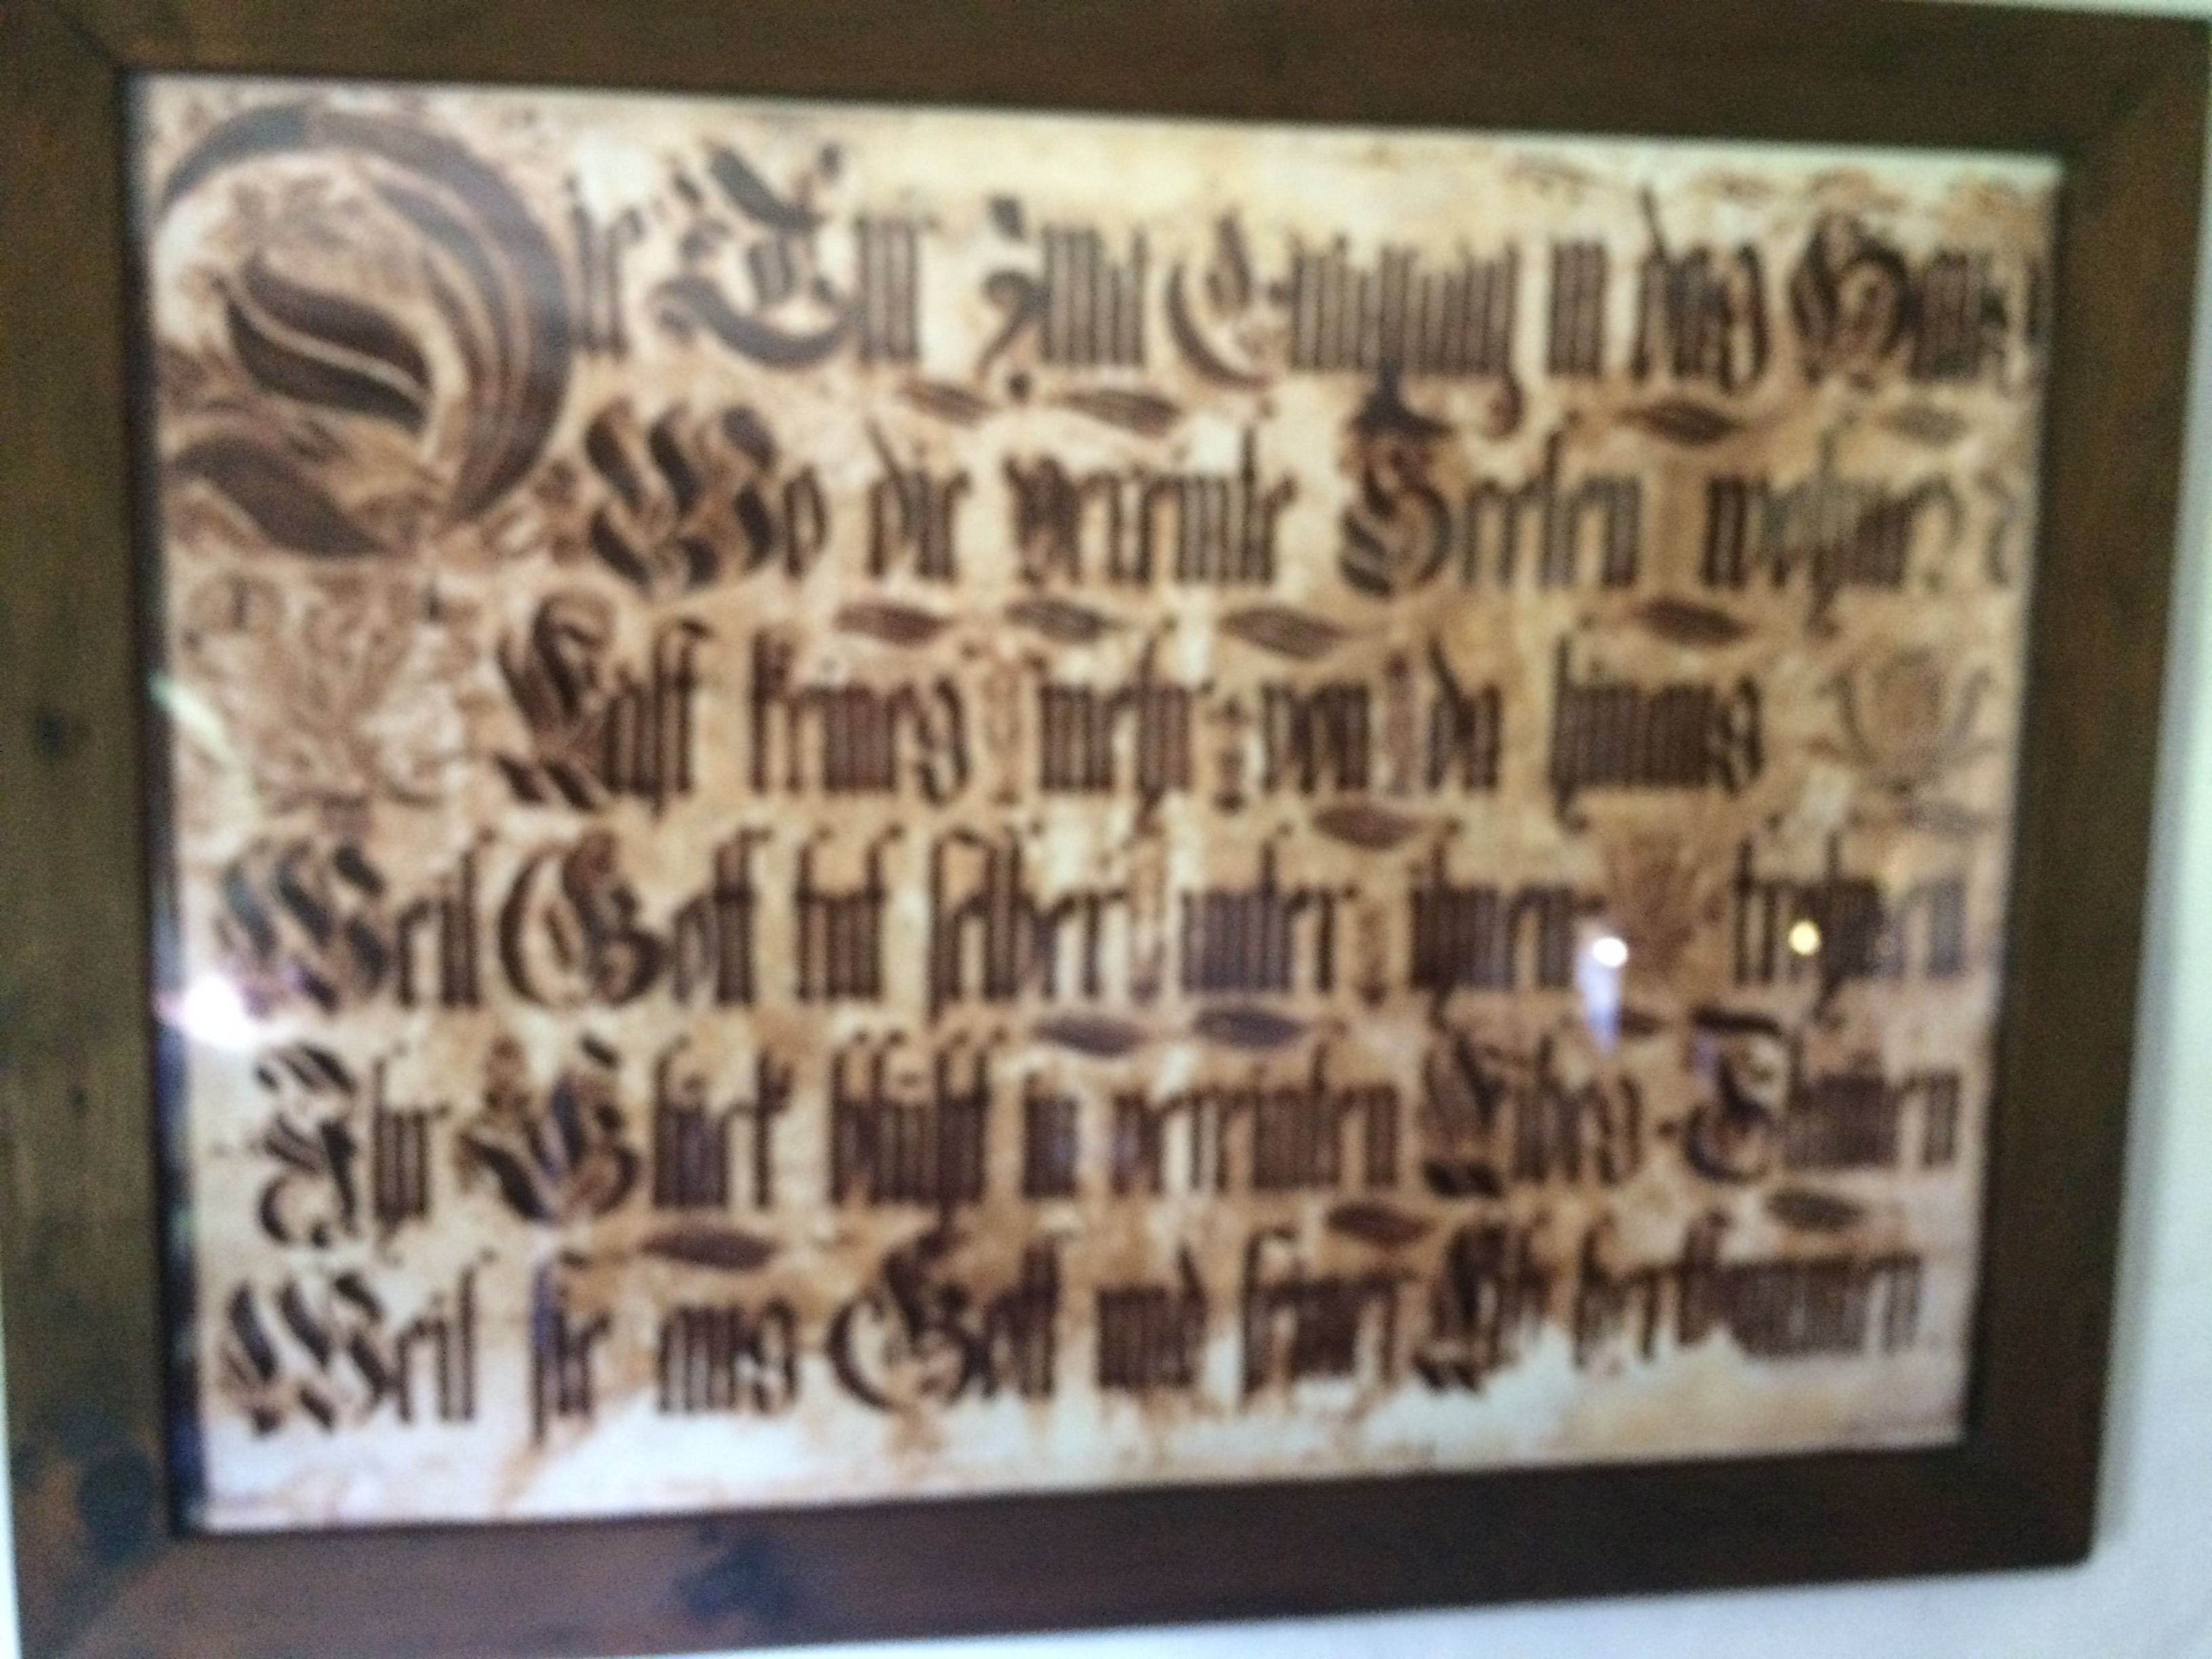 Die Thür zum Eingang in das Haus
Wo die vereinte Seelen wohnen
Laßt keines mehr von da hinaus
Weil Gott tut selber unter ihnen thronen
Ihr Glück blüht in vereinten Liebes-Flammen
Weil sie aus Gott und seiner Lieb herkommen